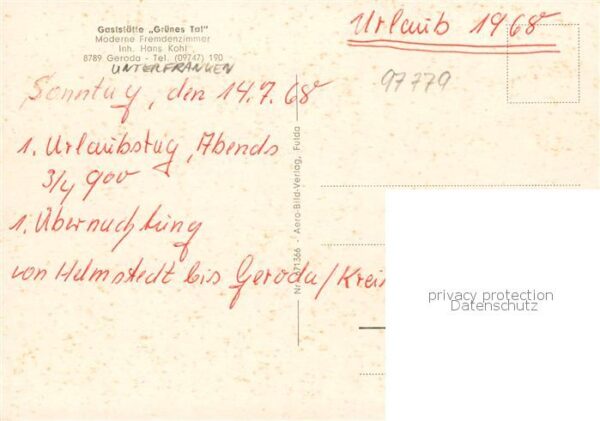 Gaststätte „Grünes Tal"
Moderne Fremdenzimmer
Inh. Hans Kohl
8789 Geroda - Tel. (09747) 190
UNTERFRANKEN
Urlaub 1968
97779
Sonntag, den 14.7.68
1. Urlaubstag, Abends
3/4 900
1. Übernachtung
von Helmstedt bis Geroda/Kreis
Aero-Bild-Verlag, Fulda
privacy protection
Datenschutz